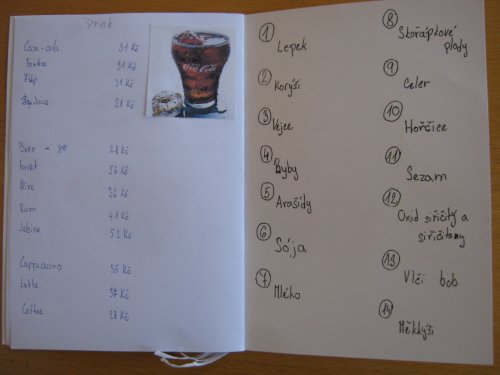 Drink
Coca-cola 31 Kč
Fanta 31 Kč
31 Kč
28 Kč
Coca-Cola
Beer 28 Kč
54 Kč
Wine 36 Kč
Rum 41 Kč
52 Kč
Cappuccino 35 Kč
Latte
Coffee 28 Kč
1 Lepek
2 Korýši
3 Vejce
4 Ryby
5 Arašídy
6 Sója
7 Mléko
8 Skořápkové
plody
9 Celer
10 Hořčice
11 Sezam
12 Oxid siřičitý a
siřičitany
13 Vlčí bob
14 Měkkýši